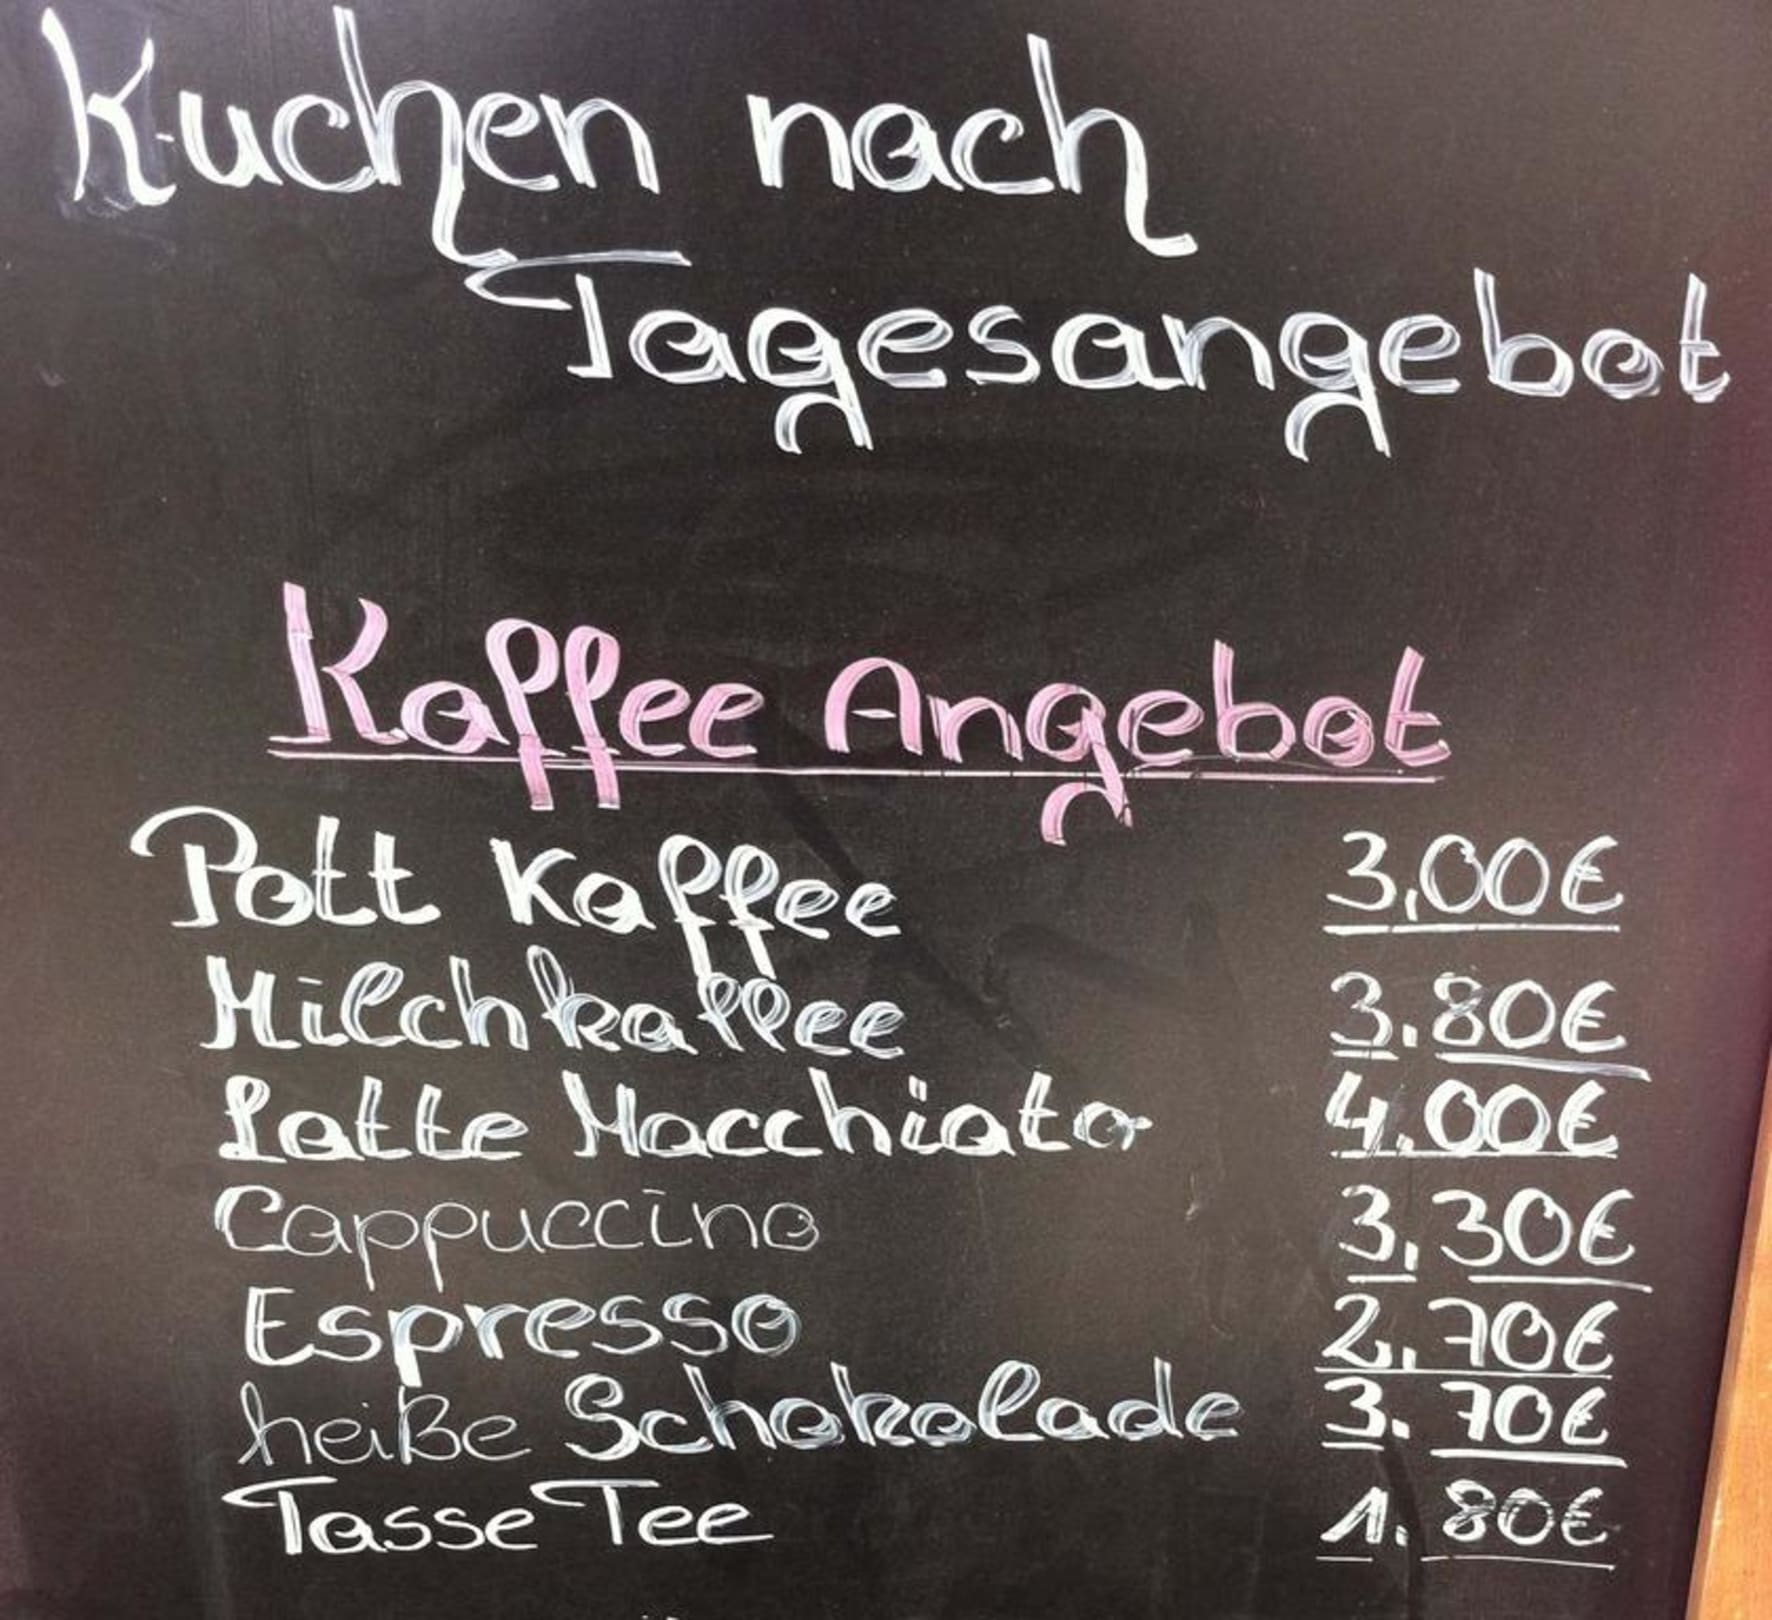 Kuchen nach
Tagesangebot
Kaffee Angebot
Pott Kaffee 3,00€
Milchkaffee 3.80€
Latte Macchiato 4.00€
Cappuccino 3,30€
Espresso 2,70€
heiße Schokolade 3.70€
Tasse Tee 1.80€